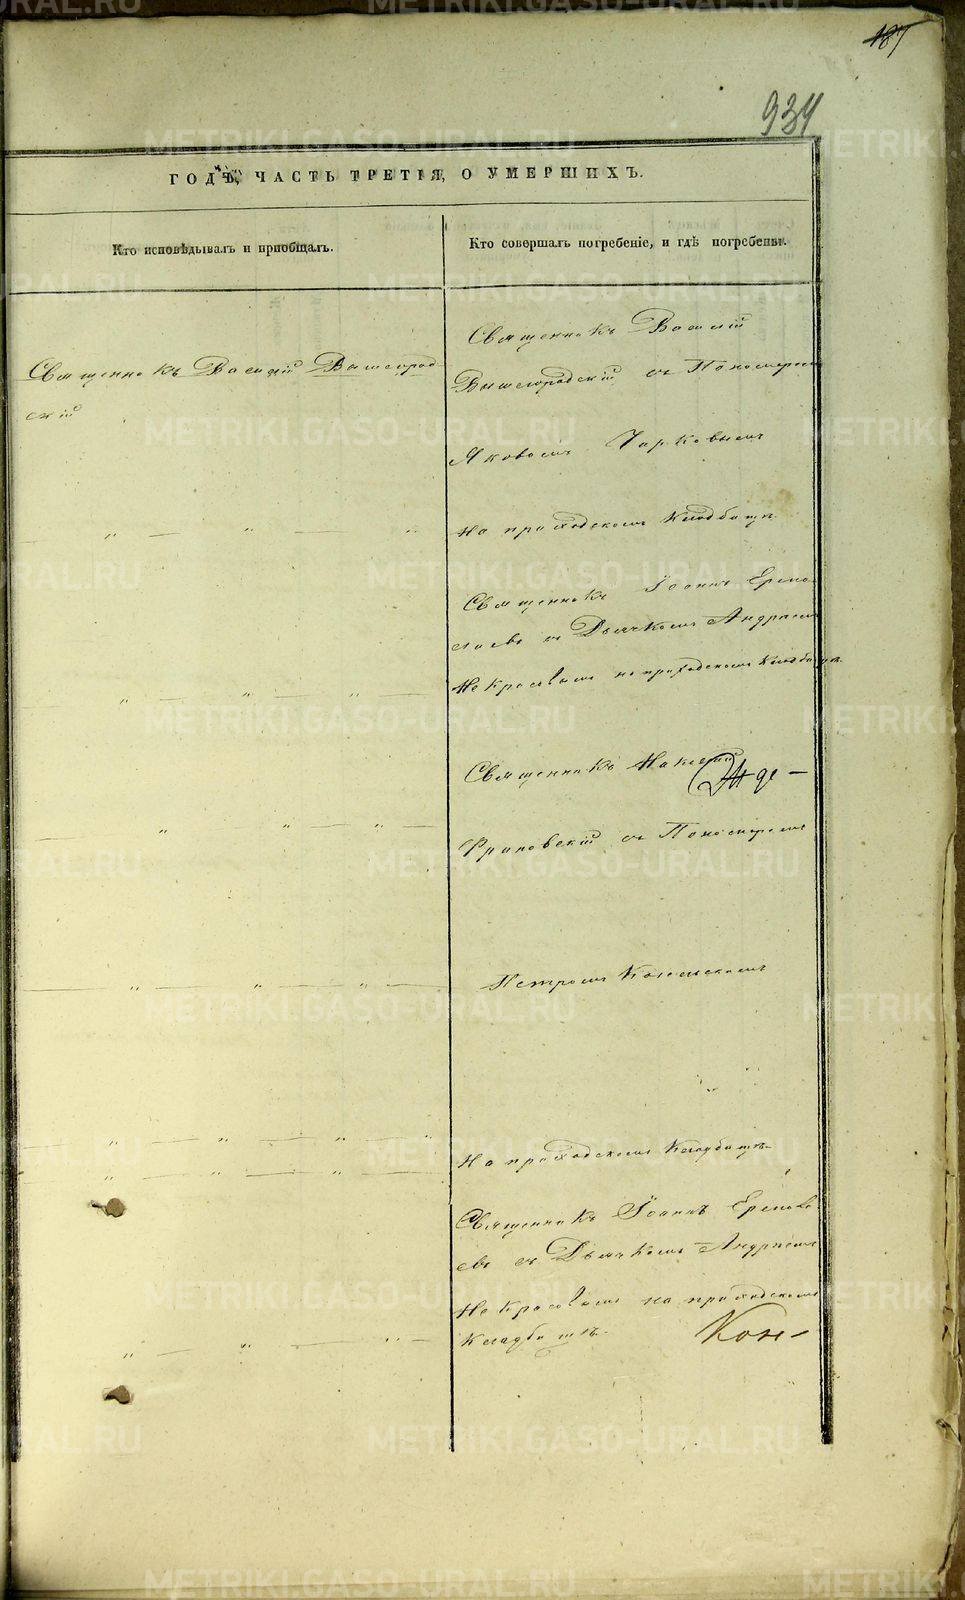 187
934
ГОДЪ, ЧАСТЬ ТРЕТІЯ, О УМЕРШИХЪ.
Кто исповѣдывалъ и пріобщалъ.
Кто совершалъ погребеніе, и гдѣ погребены.
Священникъ Василій Вышегород-
скій
Священникъ Василій
Вышегородскій съ Пономаремъ
Яковомъ Чирковымъ
На приходскомъ Кладбищѣ.
Священникъ Іоаннъ Ермо-
лаевъ съ Дьячкомъ Андреемъ
Некрасовымъ на приходскомъ Кладбищѣ.
Священникъ
съ Пономаремъ
Петромъ
На приходскомъ Кладбищѣ.
Священникъ Іоаннъ
съ Дьячкомъ Андреемъ
Некрасовымъ на приходскомъ
Кладбищѣ.
METRIKI.GASO-URAL.RU